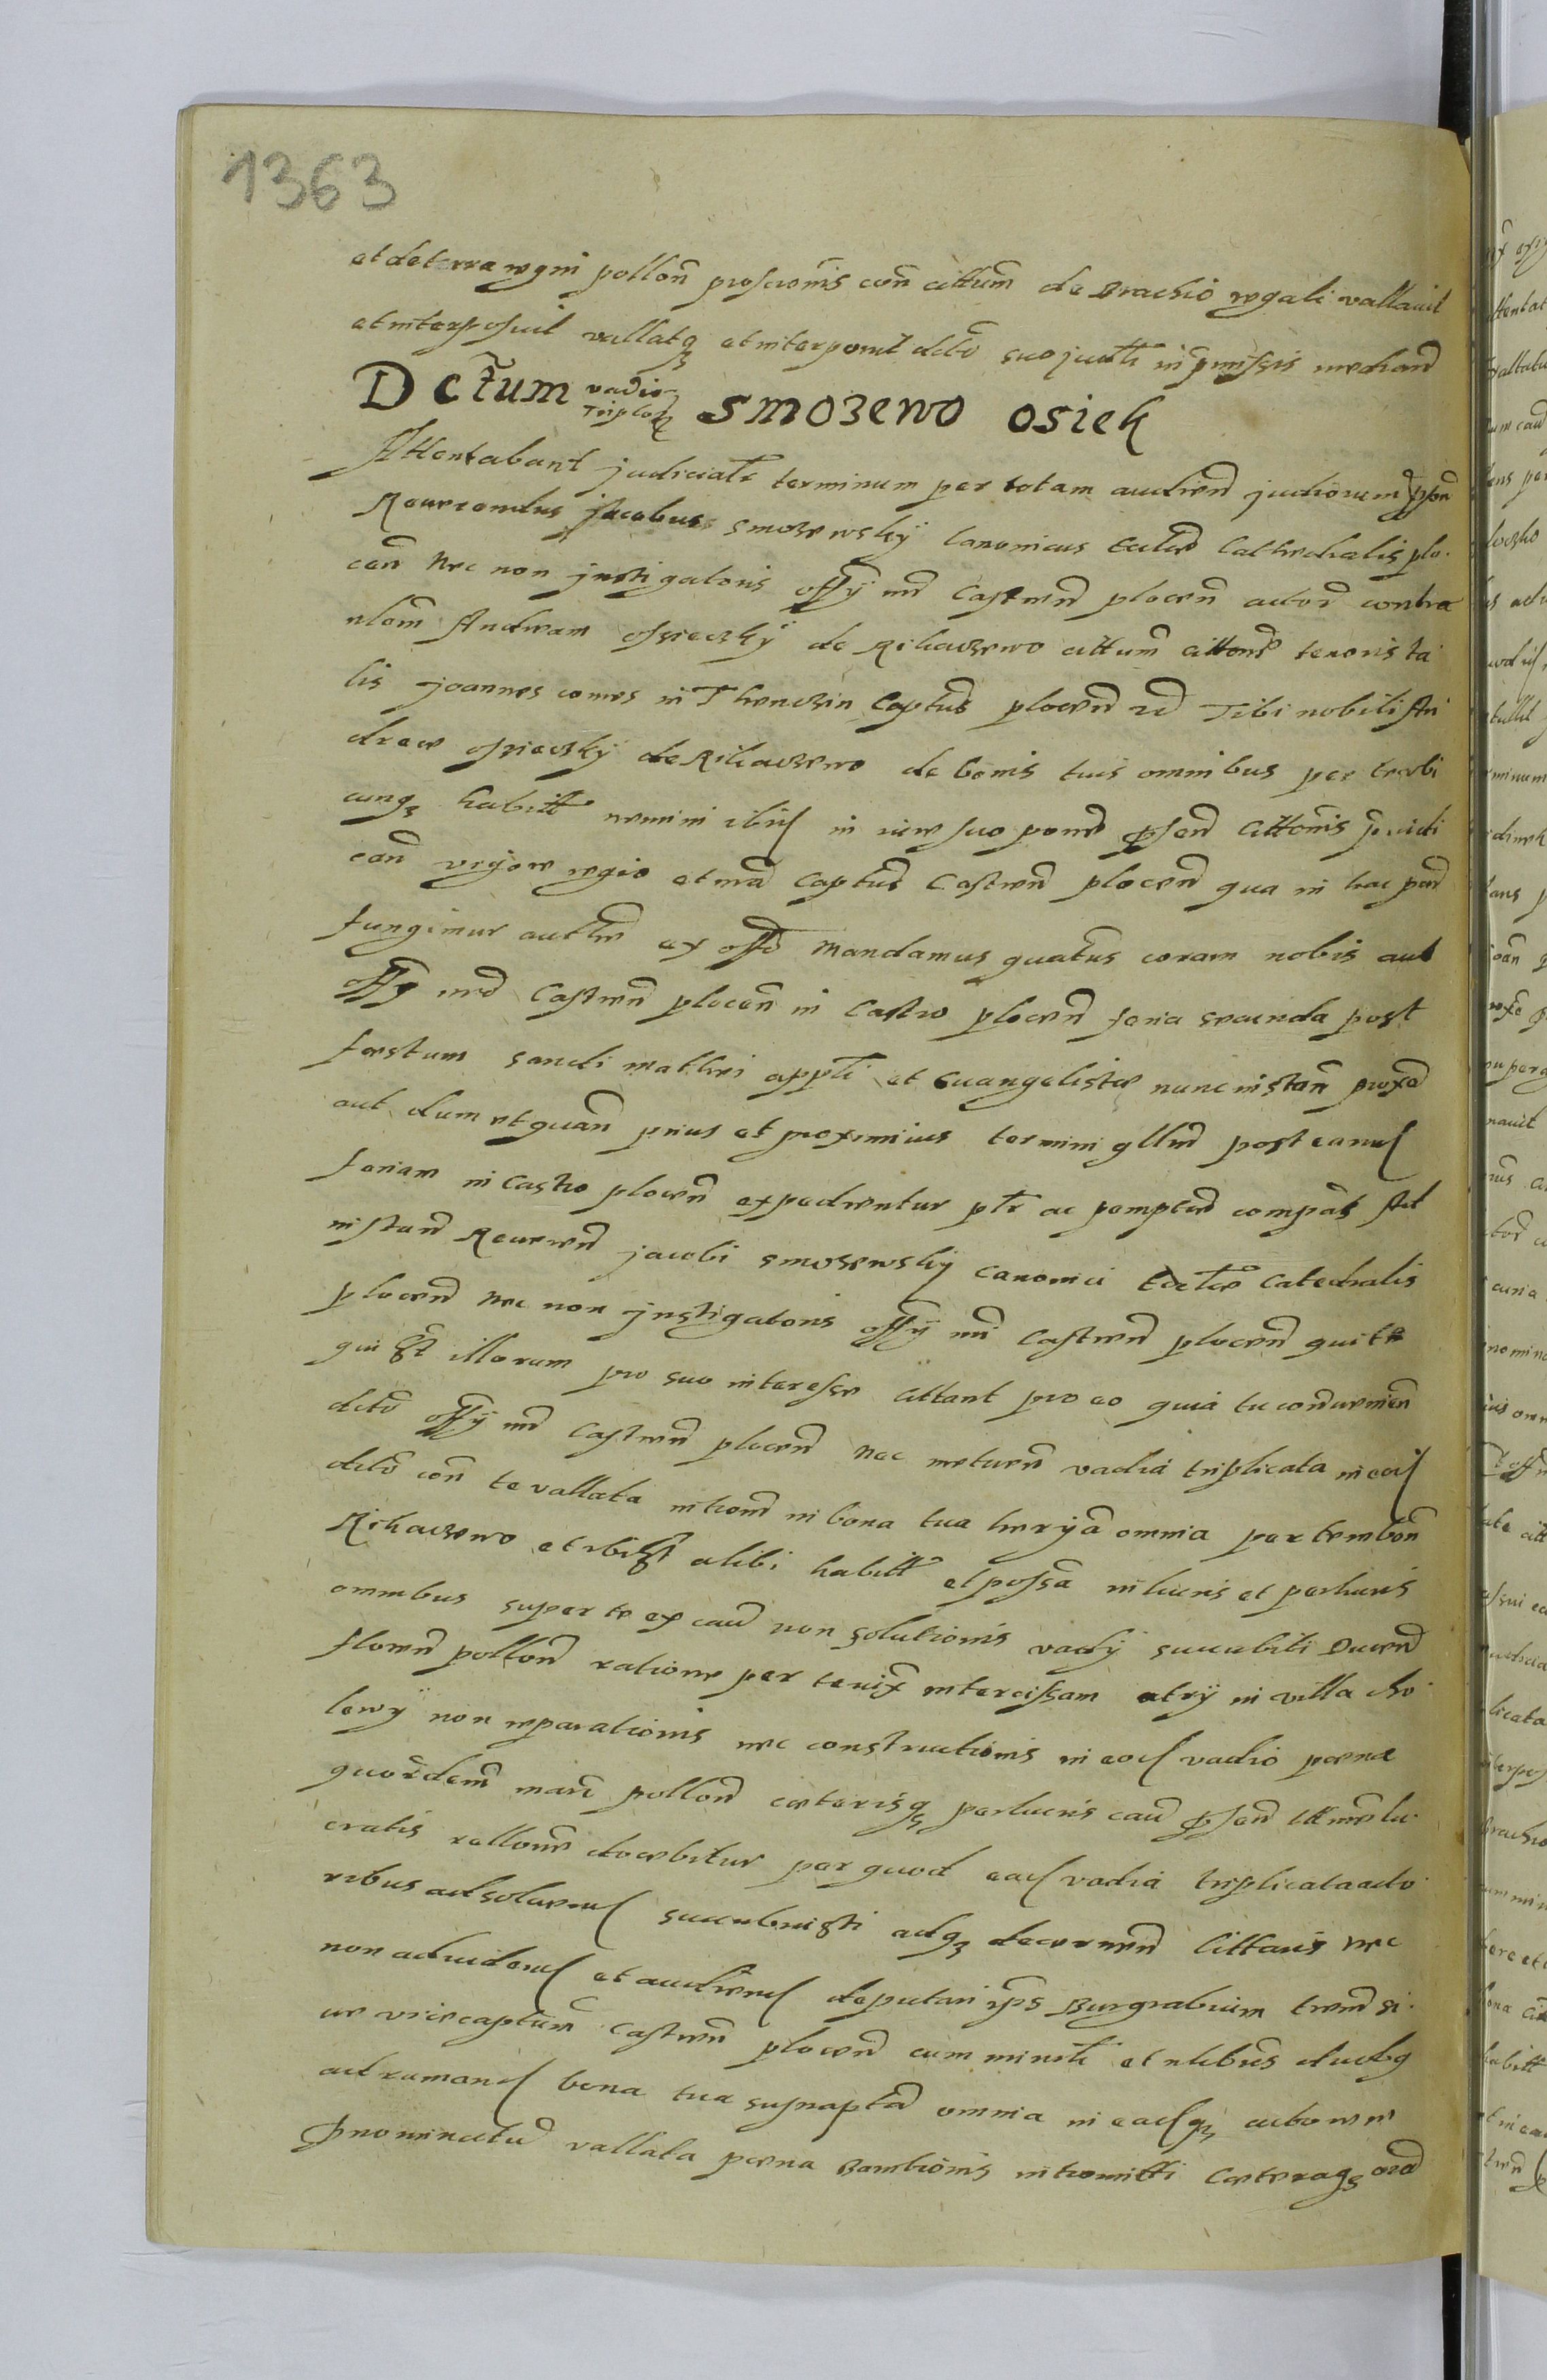 1363
et de terra regni pollon proscronis con cittum de Brachio regali vallavit
et interposuit vallatq et interponit decto suo judti in pmissis mediand
Dctum vadior triplor Smozewo Osiek
Attentabant judicialr terminum per totam audiend judiorum pson
Reverendus Jacobus Smozewsky Canonicus Eccleæ Cathedralis plo
cen Nec non jnstigatoris offy nri Castren plocen actor contra
nlem Andream ossieczky de Rikaczewo cittum cittonis tenoris ta
lis Joannes comes in Thenczin Captus plocen Tibi nobili An
dreæ ossieczky de Rikaczewo de bonis tuis omnibus per te vbi
cunq habitt nemini in iure suo pond psen Cittonis judi
can vigore regio et nra Captus Castren plocen qua in hac par
fungimur authe ex offo mandamus quatus coram nobis aut
offo nro Castren plocen in Castro plocen feria secunda post
festum sancti matthei appli et Euangelistæ nunc instan proxe
aut dum et quan prius et proximius termini qllnd post eand
feriam in Castro plocen expedientur ptr ac pempte compas Ad
instand Reveren Jacobi Smozewsky canonici Eccleæ Catedralis
plocen Nec non jnstigatoris offy nri Castren plocen qui te
qui illorum pro suo interesse cittant pro eo quia tu
decto offy nri Castren plocen nec metuen vadia triplicata in eod
decto con te vallata introm in bona tua hæry omnia per te in bon
Rikaczewo et vbi alibi habitt et possa in lucris et perlucris
omnibus super te ex cau non solutionis vady succubiti Ducen
floren pollon ratione per te intercissam atry in villa cho
lewy non reparationis nec constructionis in eod vadio pœnæ
quordem marc pollon cæterisq perlucris cau psen ttmrs lu
cratis rellone docebitur per quod ead vadia triplicata acto
ribus ad solvend succubuisti adq decernen littaris nec
non ad videnq et audiend deputari ips Burgrabium
ue vicecaptum Castren plocen cum minrli et nlibus duobq
ad rumand bona tua omnia in eadq actorem
pnominatu vallata pœna Bannitionis intromitti Cæteraq